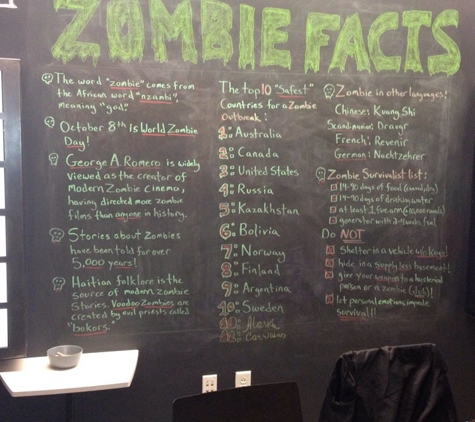 ZOMBIE FACTS
The word "zombie" comes from
the African word "nzambi",
meaning "god."
October 8th is World Zombie
Day!
George A. Romero is widely
viewed as the creator of
Modern Zombie Cinema,
having directed more zombie
films than anyone in history.
Stories about Zombies
have been told for over
5,000 years!
Haitian folklore is the
source of modern zombie
stories. Voodoo Zombies are
created by evil priests called
"bokors."
The top 10 "Safest"
Countries for a Zombie
Outbreak:
1: Australia
2: Canada
3: United States
4: Russia
5: Kazakhstan
6: Bolivia
7: Norway
8: Finland
9: Argentina
10: Sweden
Alaska
Zombie in other languages!
Chinese: Kuang Shi
Scandinavian: Draugr
French: Revenir
German: Nachtzehrer
Zombie Survivalist list:
14-90 days of food
14-90 days of drinking water
at least 1 fire arm
generator with fuel
Do NOT
Shelter in a vehicle w/o Keys!
hide in a supply less basement!
give your weapon to a hysterical
person or a zombie (duh)!
let personal emotions impede
survival!!